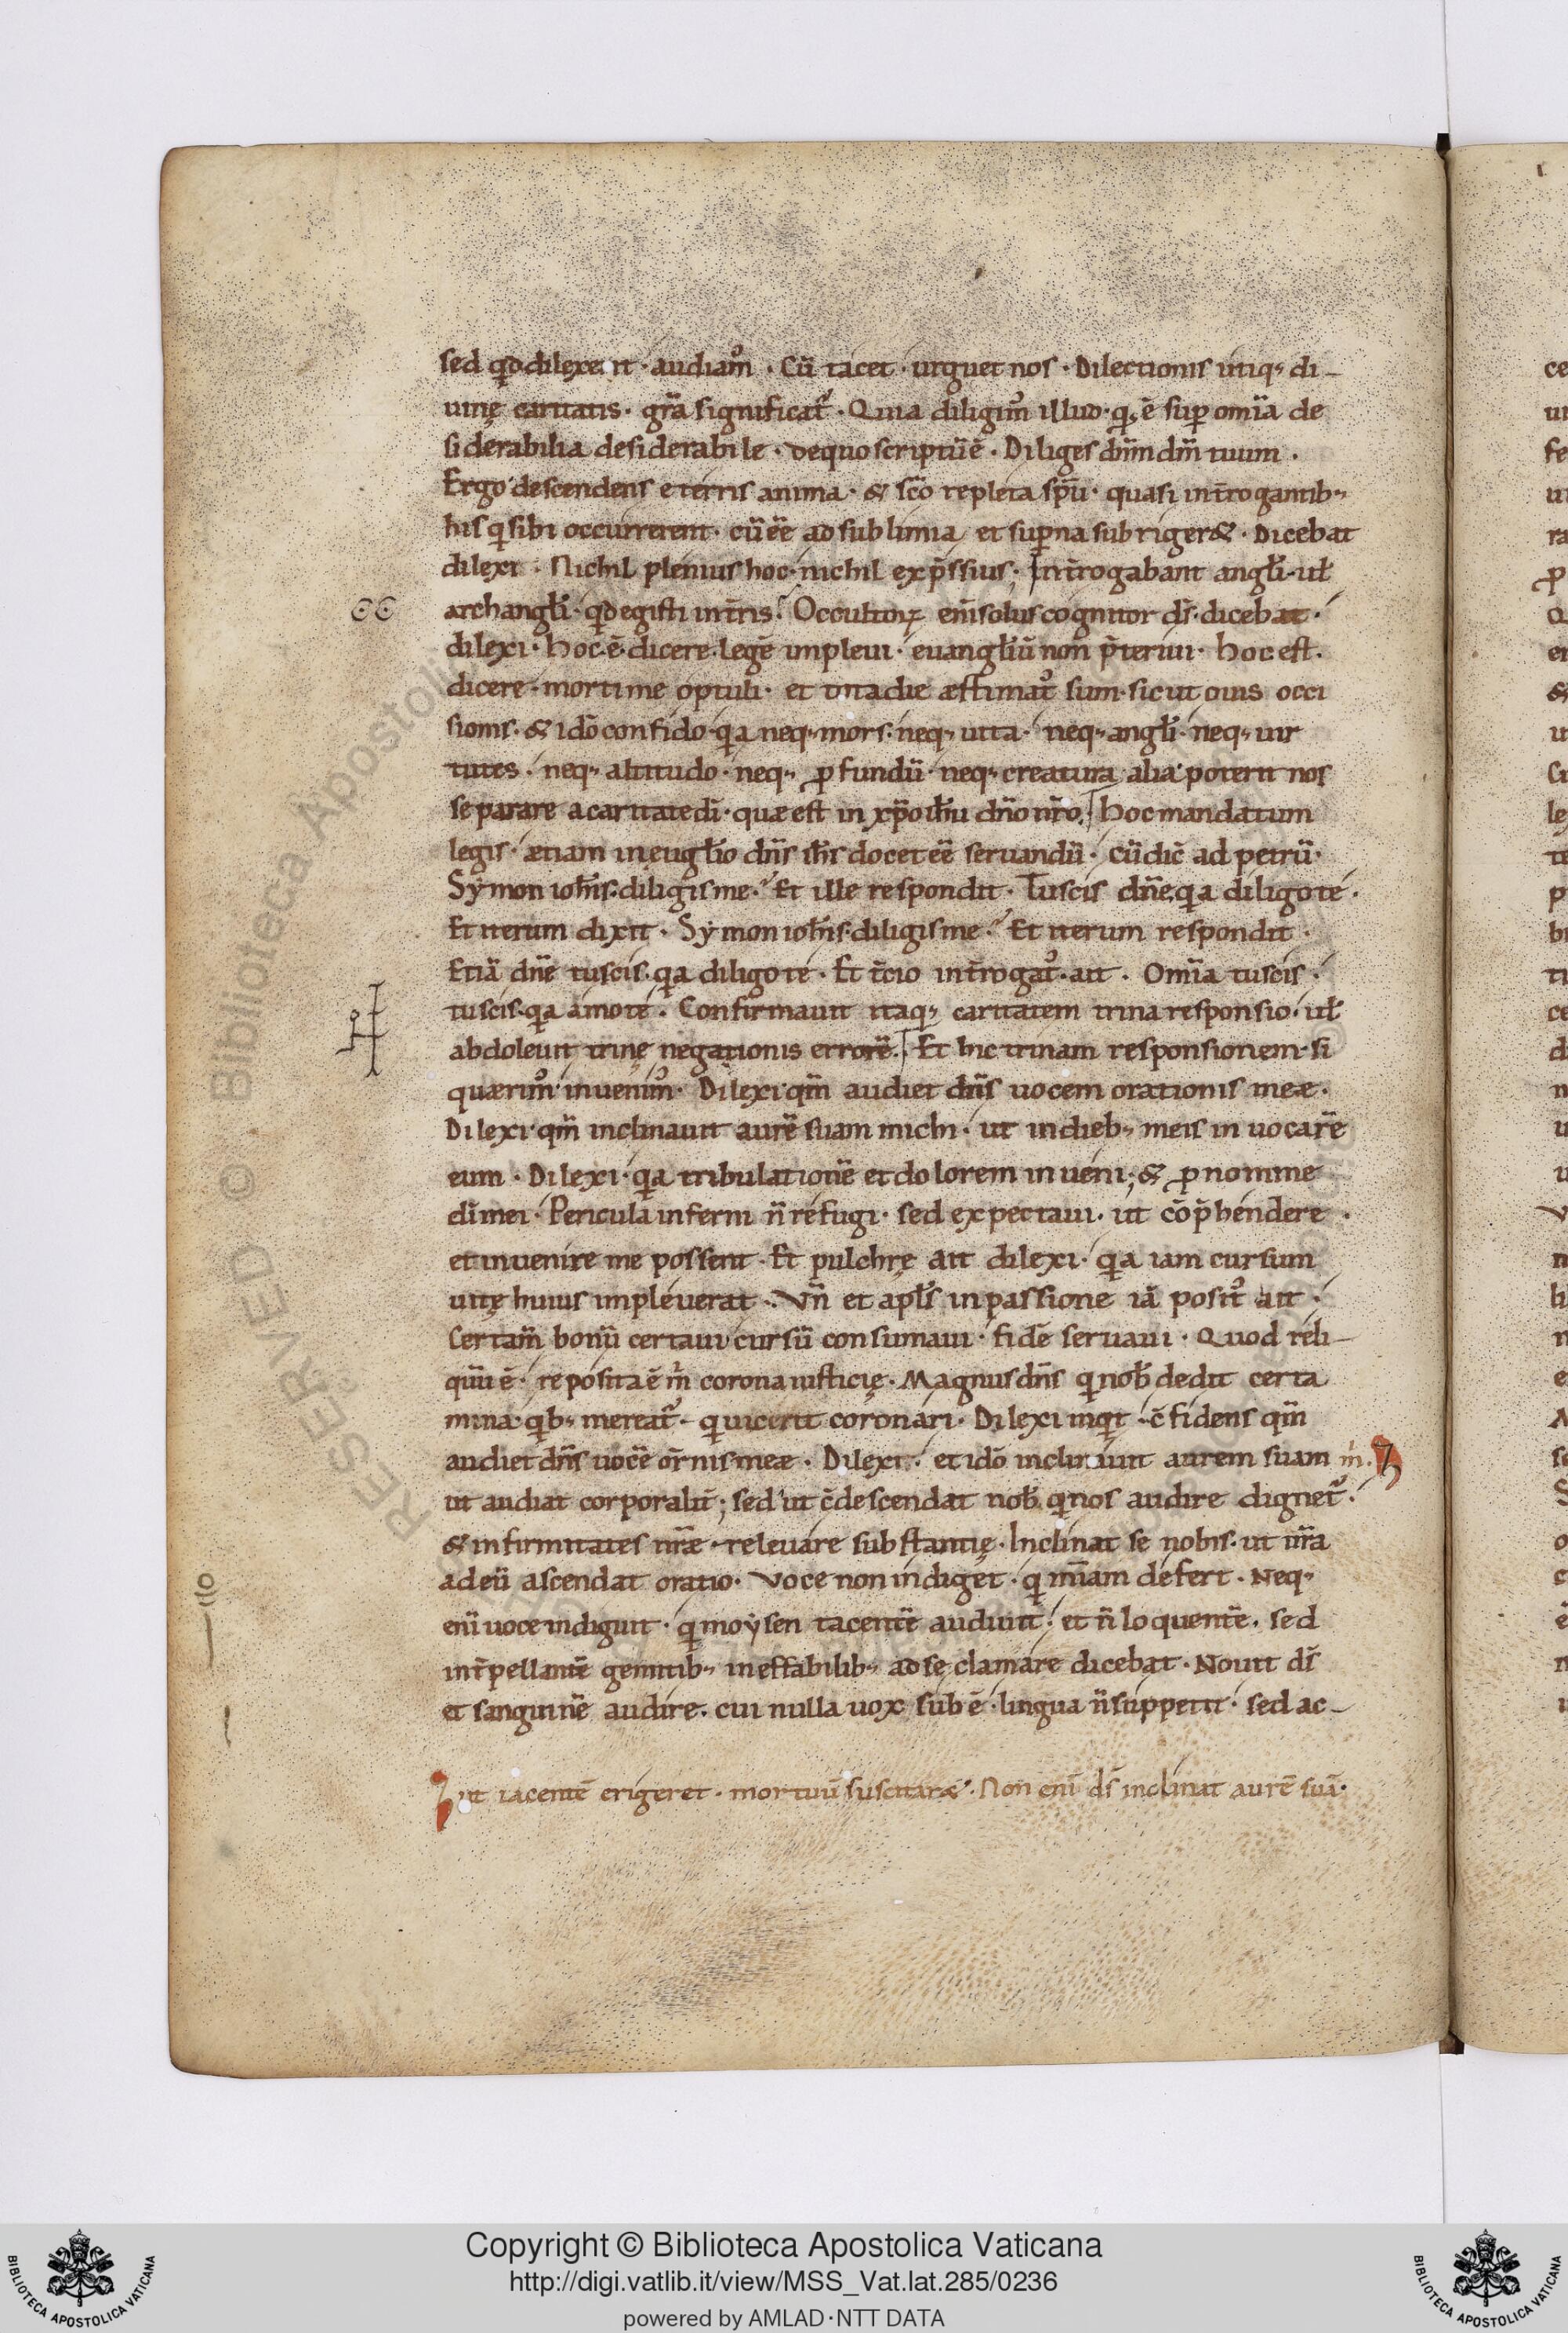 sed qđ dilexerit · audiam᾽ · Cū tacet · urguet nos · Dilectionis utiq; di-
uinę caritatis · gr̄a significat᾽ · Quia diligim᾽ illud · q̄ ē sup omīa de
siderabilia desiderabile · de quo scriptū ē · Diliges dn̄m dm̄ tuum ·
Ergo descendens e terris anima · & sc̄o repleta spū · quasi int̄rogantib;
his q sibi occurrerent · cū eē ad sublimia et sup̄na subriger& · Dicebat
dilexi · Nichil plenius hoc · nichil exp̄ssius · Int̄rogabant angl̄i · ul̄
archangl̄i · qđ egisti in t̄ris? Occultorꝝ eni solus cognitor dš · dicebat ·
dilexi · hoc ē dicere · legē impleui · euangl̄iū non p̄teriui · hoc est ·
dicere · morti me optuli · et tota die æstimat᾽ sum · sicut ouis occi
sionis · & idō confido · qa neq; mors · neq; uita · neq; angl̄i · neq; uir
tutes · neq; altitudo · neq; ꝓfundū · neq; creatura alia · poterit nos
separare a caritate dī · quæ est in xp̄o ihu dn̄o nr̄o · hoc mandatum
legis · ætiam in eugl̄io dn̄s ih̄s docet eē seruandū · cū dic̄ ad petrū ·
Symon ioh̄is · diligis me? Et ille respondit · Tu scis dn̄e, qa diligo te ·
Et iterum dixit · Symon ioh̄is · diligis me? Et iterum respondit ·
Etiā dn̄e tu scis · qa diligo te · Et t̄cio int̄rogat᾽ · ait · Omīa tu scis ·
tu scis · qa amo te · Confirmauit itaq; caritatem trina responsio · ul̄
aboleuit trinę negationis errorē · Et hic trinam responsionem · si
quærim᾽ · inuenim᾽ · Dilexi · qm̄ audiet dn̄s uocem orationis meæ ·
Dilexi · qm̄ inclinauit aurē suam michi · ut in dieb; meis inuocarē
eum · Dilexi · qa tribulationē et dolorem inueni; & ꝓ nomine
dī mei · Pericula inferni n̄ refugi · sed expectaui · ut cōp̄hendere ·
et inuenire me possent · Et pulchrę ait dilexi · qa iam cursum
uitę huius impleuerat · Vn̄ et apl̄s in passione iā posit᾽ ait ·
Certam̄ bonū certaui cursū consumaui · fidē seruaui · Quod reli-
quū ē · reposita ē m̄ corona iusticię · Magnus dn̄s q nob̄ dedit certa
mina · qib; mereat᾽ · qi uicerit coronari · Dilexi inqit · c̄fidens qm̄
audiet dn̄s uocē or̄nis meæ · Dilexi · et idō inclinauit aurem suam m̄ ·
ut audiat corporalit̄; sed ut c̄descendat nob̄ · qi nos audire dignet᾽ ·
& infirmitates nr̄æ · releuare substantię · Inclinat se nobis · ut nr̄a
ad eū ascendat oratio · Voce non indiget · q mīam defert · Neq;
eni uoce indiguit · q moysen tacentē audiuit · et n̄ loquentē · sed
int̄pellantē gemitib; ineffabilib; ad se clamare dicebat · Nouit dš
et sanguinē audire · cui nulla uox sub ē · lingua n̄ suppetit · sed ac-
ut iacentē erigeret · mortuū suscitar& · Non eni dš inclinat aurē suā ·
RESERVED © Biblioteca Apostolica
Copyright © Biblioteca Apostolica Vaticana
http://digi.vatlib.it/view/MSS_Vat.lat.285/0236
powered by AMLAD·NTT DATA
BIBLIOTECA APOSTOLICA VATICANA
BIBLIOTECA APOSTOLICA VATICANA